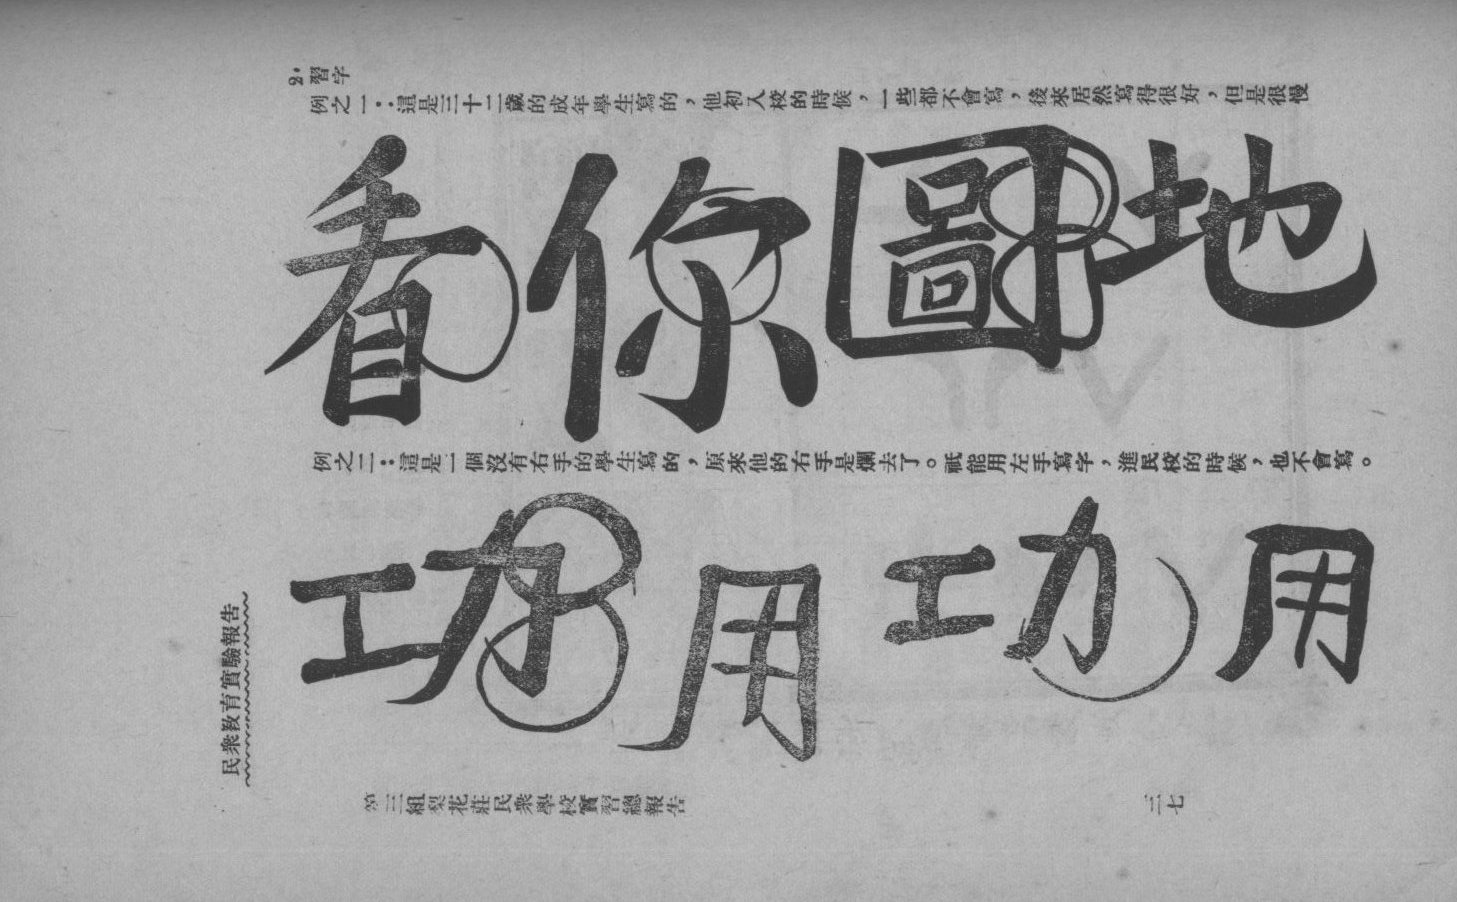 2.習字
例之一：這是三十二歲的成年學生寫的，他初入校的時候，一些都不會寫，後來居然寫得很好，但是很慢
看你圖地
例之二：這是一個沒有右手的學生寫的，原來他的右手是爛去了。祇能用左手寫字，進民校的時候，也不會寫。
功用功用
民衆敎育實驗報告
第三組梨花莊民衆學校實習總報告
三七